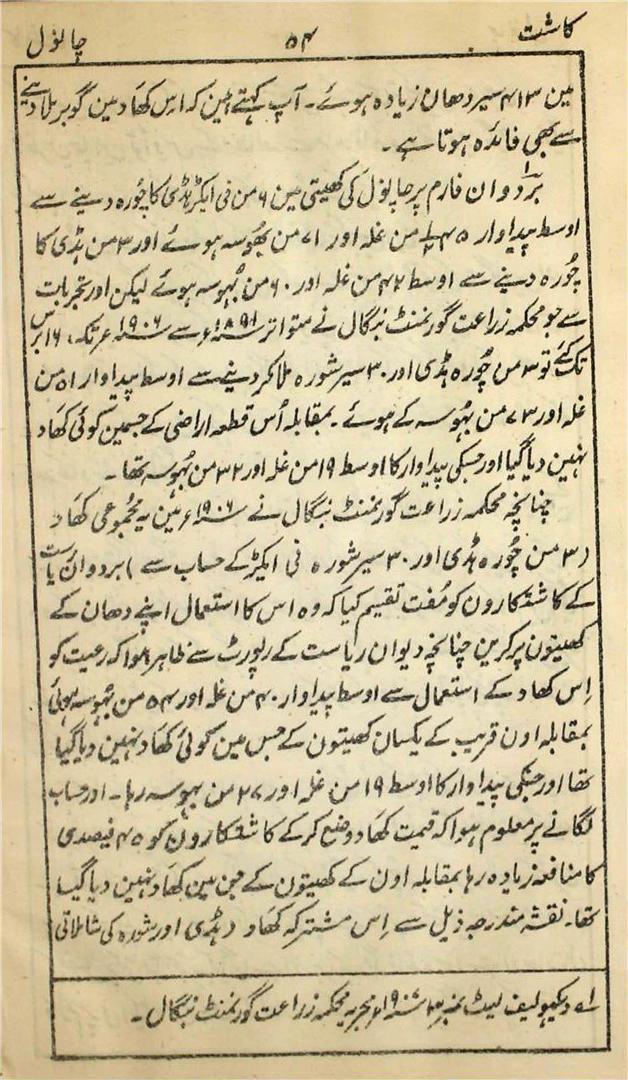 کاشت ۵۴ چانول
مین ۴۱۳ سیر دھان زیادہ ہوئے۔ آپ کہتے ہین کہ اس کھاد مین گوبر ملا دینے
سے بھی فائدہ ہوتا ہے۔
بردوان فارم پر چانول کی کھیتی مین ۶ من فی ایکڑ ہڈی کا چُورہ دینے سے
اوسط پیداوار ۴۵ من غلہ اور ۷۱ من بھُوسہ ہوئے اور ۳ من ہڈی کا
چُورہ دینے سے اوسط ۴۲ من غلہ اور ۶۰ من بُہوسہ ہوئے لیکن اور تجربات
سے جو محکمہ زراعت گورنمنٹ بنگال نے متواتر ۱۸۹۱ء سے ۱۹۰۶ء تک، ۱۶ برس
تک کئے تو ۳ من چُورہ ہڈی اور ۳۰ سیر شورہ ملا کر دینے سے اوسط پیداوار ۵۱ من
غلہ اور ۷۳ من بُہوسہ کے ہوئے۔ بمقابلہ اُس قطعہ اراضی کے جسمین کوئی کھاد
نہین دیا گیا اور جسکی پیداوار کا اوسط ۱۹ من غلہ اور ۳۲ من بُہوسہ تھا۔
چنانچہ محکمہ زراعت گورنمنٹ بنگال نے ۱۹۰۶ء مین یہ مجموعی کھاد
(۳ من چُورہ ہڈی اور ۳۰ سیر شورہ فی ایکڑ کے حساب سے) بردوان ریاست
کے کاشتکارون کو مُفت تقسیم کیا کہ وہ اس کا استعمال اپنے دھان کے
کھیتون پر کرین چنانچہ دیوان ریاست کے رپورٹ سے ظاہر ہوا کہ رعیت کو
اِس کھاد کے استعمال سے اوسط پیداوار ۴۰ من غلہ اور ۵۴ من بُہوسہ ہوئی
بمقابلہ اون قریب کے یکسان کھیتون کے جس مین کوئی کھاد نہین دیا گیا
تھا اور جسکی پیداوار کا اوسط ۱۹ من غلہ اور ۲۷ من بہوسہ رہا۔ اور حساب
لگانے پر معلوم ہوا کہ قیمت کھاد وضع کر کے کاشتکارون کو ۴۵ فیصدی
کا منافعہ زیادہ رہا بمقابلہ اون کے کھیتون کے جن مین کھاد نہین دیا گیا
تھا۔ نقشہ مندرجہ ذیل سے اِس مشترکہ کھاد (ہڈی اور شورہ کی شاملاتی
لہ دیکھو لیف لیٹ نمبر ۳ ۱۹۰۷ء مجریہ محکمہ زراعت گورنمنٹ بنگال۔